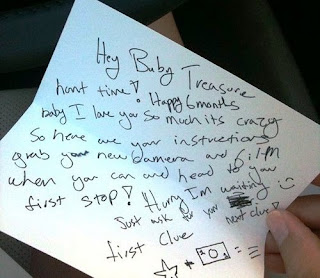 Hey Baby Treasure
hunt time! Happy 6 months
baby I love you so much its crazy
So here are your instructions
grab your new camera and film
when you can and head to your
first stop! Hurry Im waiting :)
Just ask for your next clue!
first clue